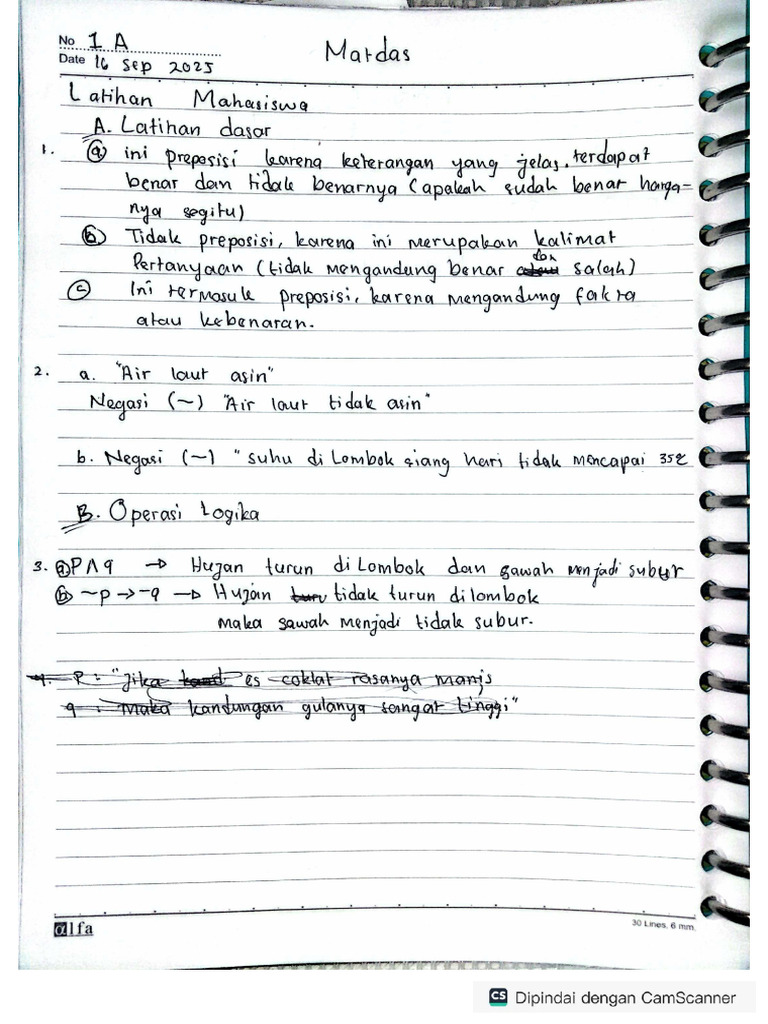 No 1 A
Matdas
Date 16 Sep 2025
Latihan Mahasiswa
A. Latihan dasar
1. a ini preposisi karena keterangan yang jelas. terdapat
benar dan tidak benarnya (apakah sudah benar harga=
nya segitu)
b Tidak preposisi, karena ini merupakan kalimat
Pertanyaan (tidak mengandung benar dan salah)
c Ini termasuk preposisi, karena mengandung fakta
atau kebenaran.
2. a. "Air laut asin"
Negasi (~) "Air laut tidak asin"
b. Negasi (~) "suhu di Lombok siang hari tidak mencapai
B. Operasi Logika
3. a P ∧ q → Hujan turun di Lombok dan sawah menjadi subur
b ~p → ~q → Hujan tidak turun di lombok
maka sawah menjadi tidak subur.
4. P : "Jika es coklat rasanya manis
q : Maka kandungan gulanya sangat tinggi"
αlfa
30 Lines, 6 mm
CS Dipindai dengan CamScanner